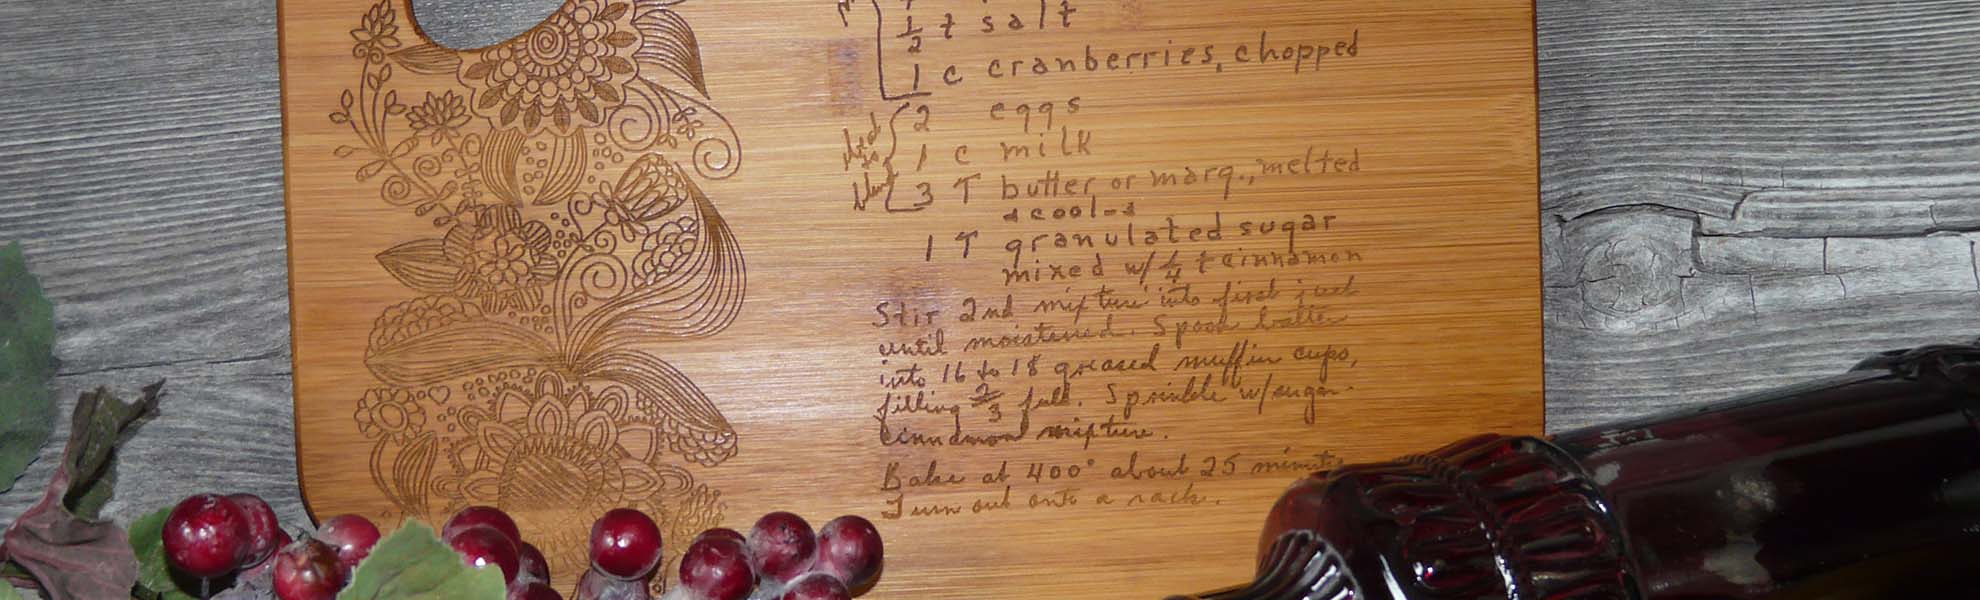 1/2 t salt
1 c cranberries, chopped
2 eggs
1 c milk
3 T butter or marg., melted
& cool-d
1 T granulated sugar
mixed w/ 1/4 t cinnamon
Stir 2nd mixture into first just
until moistened. Spoon batter
into 16 to 18 greased muffin cups,
filling 2/3 full. Sprinkle w/sugar-
cinnamon mixture.
Bake at 400° about 25 minutes
Turn out onto a rack.